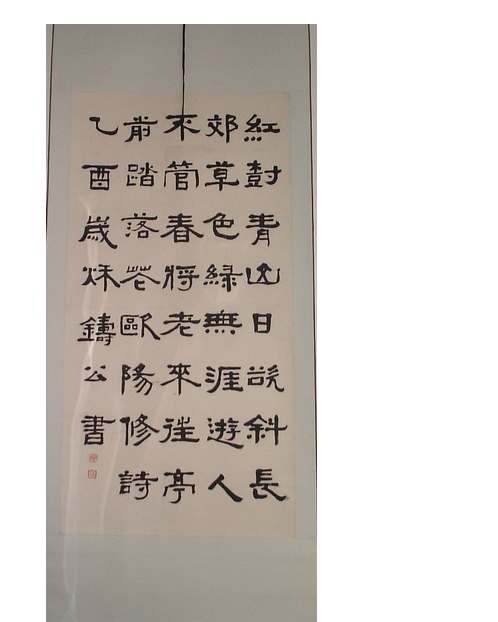 紅樹青山日欲斜長
郊草色緑無涯遊人
不管春將老來往亭
前踏落花歐陽修詩
乙酉歳秌鑄公書